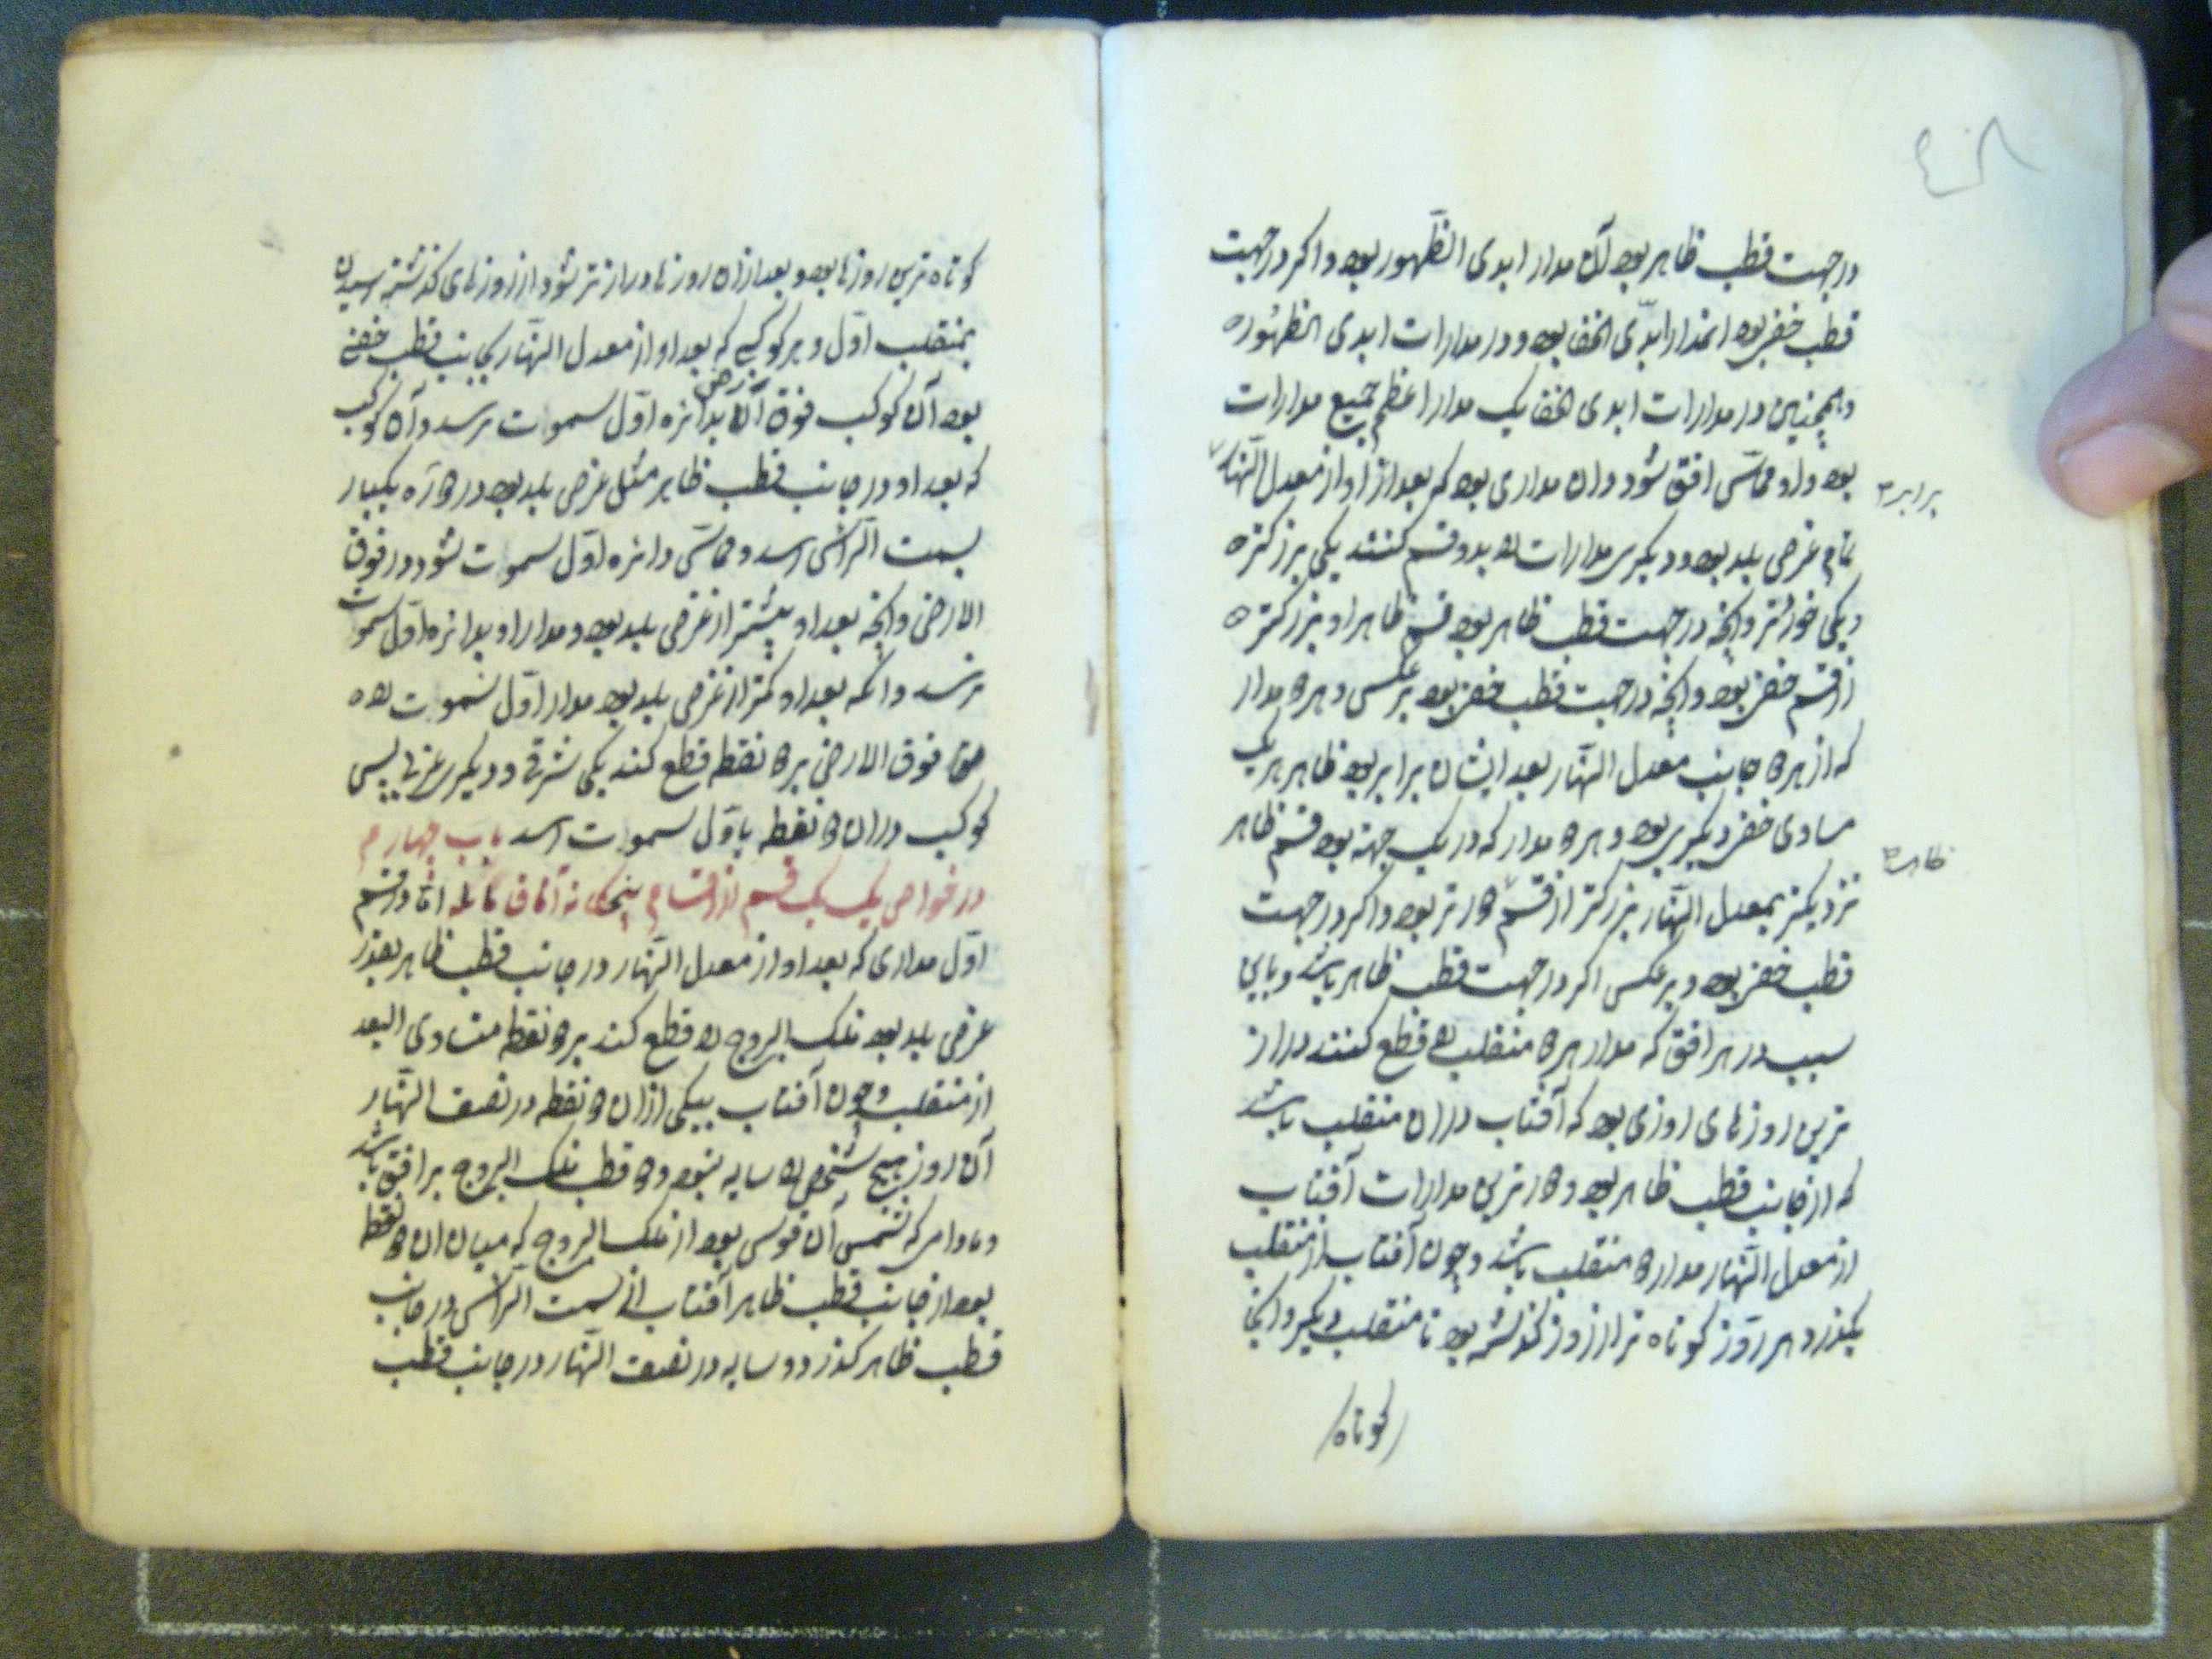 در جهت قطب ظاهر بود آن مدار ابدی الظهور بود و اکر در جهت
قطب خفی بود انمدار ابدی الخفا بود و در مدارات ابدی الظهور
و همچنین در مدارات ابدی الخفا یک مدار اعظم جمیع مدارات
بود و او مماس افق شود و ان مداری بود که بعد از او از معدل النهار
برابر
تمام عرض بلد بود و دیکر مدارات را بدو قسم کنند یکی بزرکتر
و یکی خوردتر و انچه در جهت قطب ظاهر بود قسم ظاهر او بزرکتر
از قسم خفی بود و انچه در جهت قطب خفی بود بر عکس و هر دو مدار
که از هر دو جانب معدل النهار بعد ایشان برابر بود ظاهر هر یک
مساوی خفی دیکری بود و هر دو مدار که در یک جهة بود قسم ظاهر
ظاهر
نزدیکتر بمعدل النهار بزرکتر از قسم دورتر بود و اکر در جهت
قطب خفی بود و بر عکس اکر در جهت قطب ظاهر باشد و باین
سبب در هر افق که مدار هر دو منقلب را قطع کنند دراز
ترین روزهای روزی بود که آفتاب دران منقلب باشد
که از جانب قطب ظاهر بود و دورترین مدارات آفتاب
از معدل النهار مدار دو منقلب باشد و چون آفتاب از منقلب
بکذرد هر روز کوتاه تر از روز کذشته بود تا منقلب دیکر و انجا
کوتاه
کوتاه ترین روزها بود و بعد ازان روزها درازتر شود از روزهای کذشته تا رسیدن
بمنقلب اول و هر کوکبی که بعد او از معدل النهار بجانب قطب خفی
بود آن کوکب فوق الارض بدائره اول سموت نرسد و آن کوکب
که بعد او در جانب قطب ظاهر مثل عرض بلد بود در دوره یکبار
بسمت الراس رسد و مماس دائره اول سموت شود در فوق
الارض و انچه بعد او بیشتر از عرض بلد بود و مدار او بدائره اول سموت
نرسد و انکه بعد او کمتر از عرض بلد بود مدار اول سموت را
فوق الارض بر دو نقطه قطع کند یکی شرقی و دیکری غربی پس
کوکب دران دو نقطه باول سموت رسد باب چهارم
در خواص یک یک قسم از اقسام پنجکانه آفاق مائله اما در قسم
اول مداری که بعد او از معدل النهار در جانب قطب ظاهر بقدر
عرض بلد بود فلک البروج را قطع کند بر دو نقطه متساوی البعد
از منقلب و چون آفتاب بیکی ازان دو نقطه در نصف النهار
آن روز هیچ شخص را سایه نبود و دو قطب فلک البروج بر افق باشد
و مادامی که شمس آن قوس بود از فلک البروج که میان ان دو نقطه
بود از جانب قطب ظاهر آفتاب از سمت الراس در جانب
قطب ظاهر کذرد و سایه در نصف النهار در جانب قطب